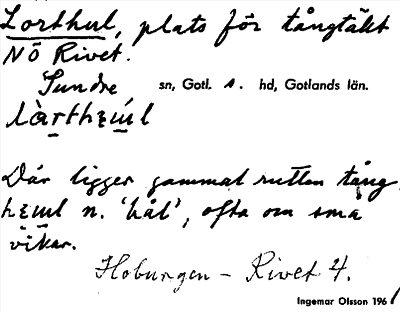 Lorthul, plats för tångtäkt
NÖ Rivet.
Sundre sn, Gotl. s. hd, Gotlands län.
Där ligger gammal rutten tång.
n. 'hål', ofta om små
vikar.
Hoburgen – Rivet 4.
Ingemar Olsson 1961